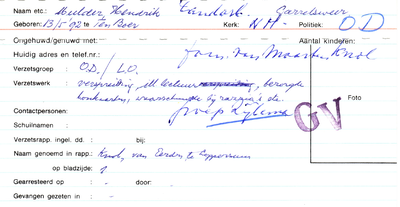 Naam etc.: Mulder Hendrik Landarb. Garrelsweer
Geboren: 13/5 '92 te Ten Boer Kerk: N.H. Politiek: OD
Ongehuwd/gehuwd met: Aantal kinderen:
Huidig adres en telef.nr.: fam. van Maarten Knol
Verzetsgroep : O.D./L.O.
Verzetswerk : verspreiding ill. lectuur, bezorgde
bonkaarten, waarschuwde bij razzia's de
Contactpersonen: groep Zijlema
Foto
GV
Schuilnamen :
Verzetsrapp. ingel. dd. : bij:
Naam genoemd in rapp.: Knol, van Eerden, te Loppersum
op bladzijde :
Gearresteerd op : - door:
Gevangen gezeten in : -